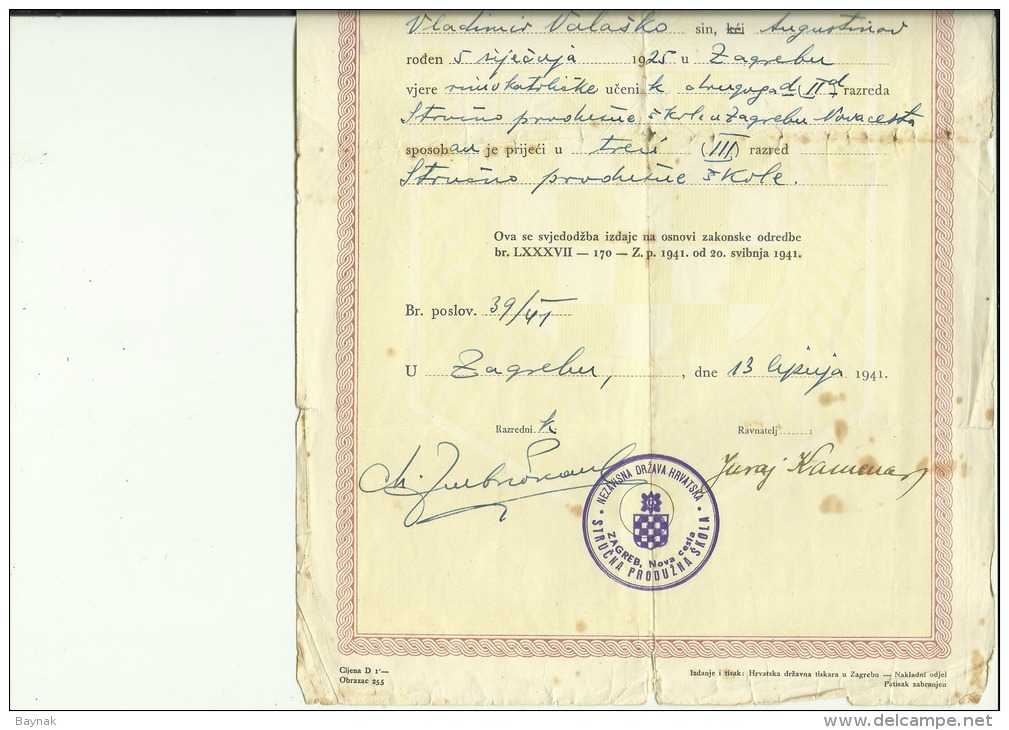 Vladimir Valaško sin, kći Augustinov
rođen 5 siječnja 1925 u Zagrebu
vjere rimokatoličke učenik drugoga d (IId) razreda
Stručno produžne škole u Zagrebu Nova cesta
sposoban je prijeći u treći (III) razred
Stručno produžne škole.
Ova se svjedodžba izdaje na osnovi zakonske odredbe
br. LXXXVII — 170 — Z. p. 1941. od 20. svibnja 1941.
Br. poslov. 39/41
U Zagrebu, , dne 13 lipnja 1941.
Razrednik:
Ravnatelj :
Juraj Kamenar
NEZAVISNA DRŽAVA HRVATSKA
STRUČNA PRODUŽNA ŠKOLA
ZAGREB, Nova cesta
Cijena D 1·—
Obrazac 255
Izdanje i tisak: Hrvatska državna tiskara u Zagrebu — Nakladni odjel
Patisak zabranjen
Baynak
www.delcampe.net